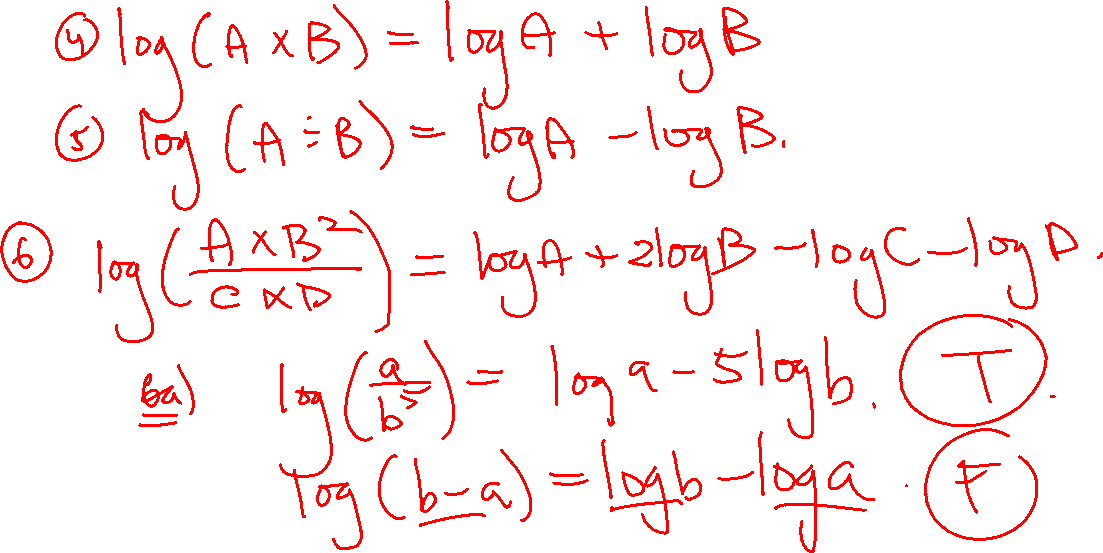 ④ log (A × B) = log A + log B
⑤ log (A ÷ B) = log A - log B.
⑥ log (A × B² / C × D) = log A + 2log B - log C - log D.
6a) log (a / b⁵) = log a - 5 log b. T.
log (b - a) = log b - log a. F